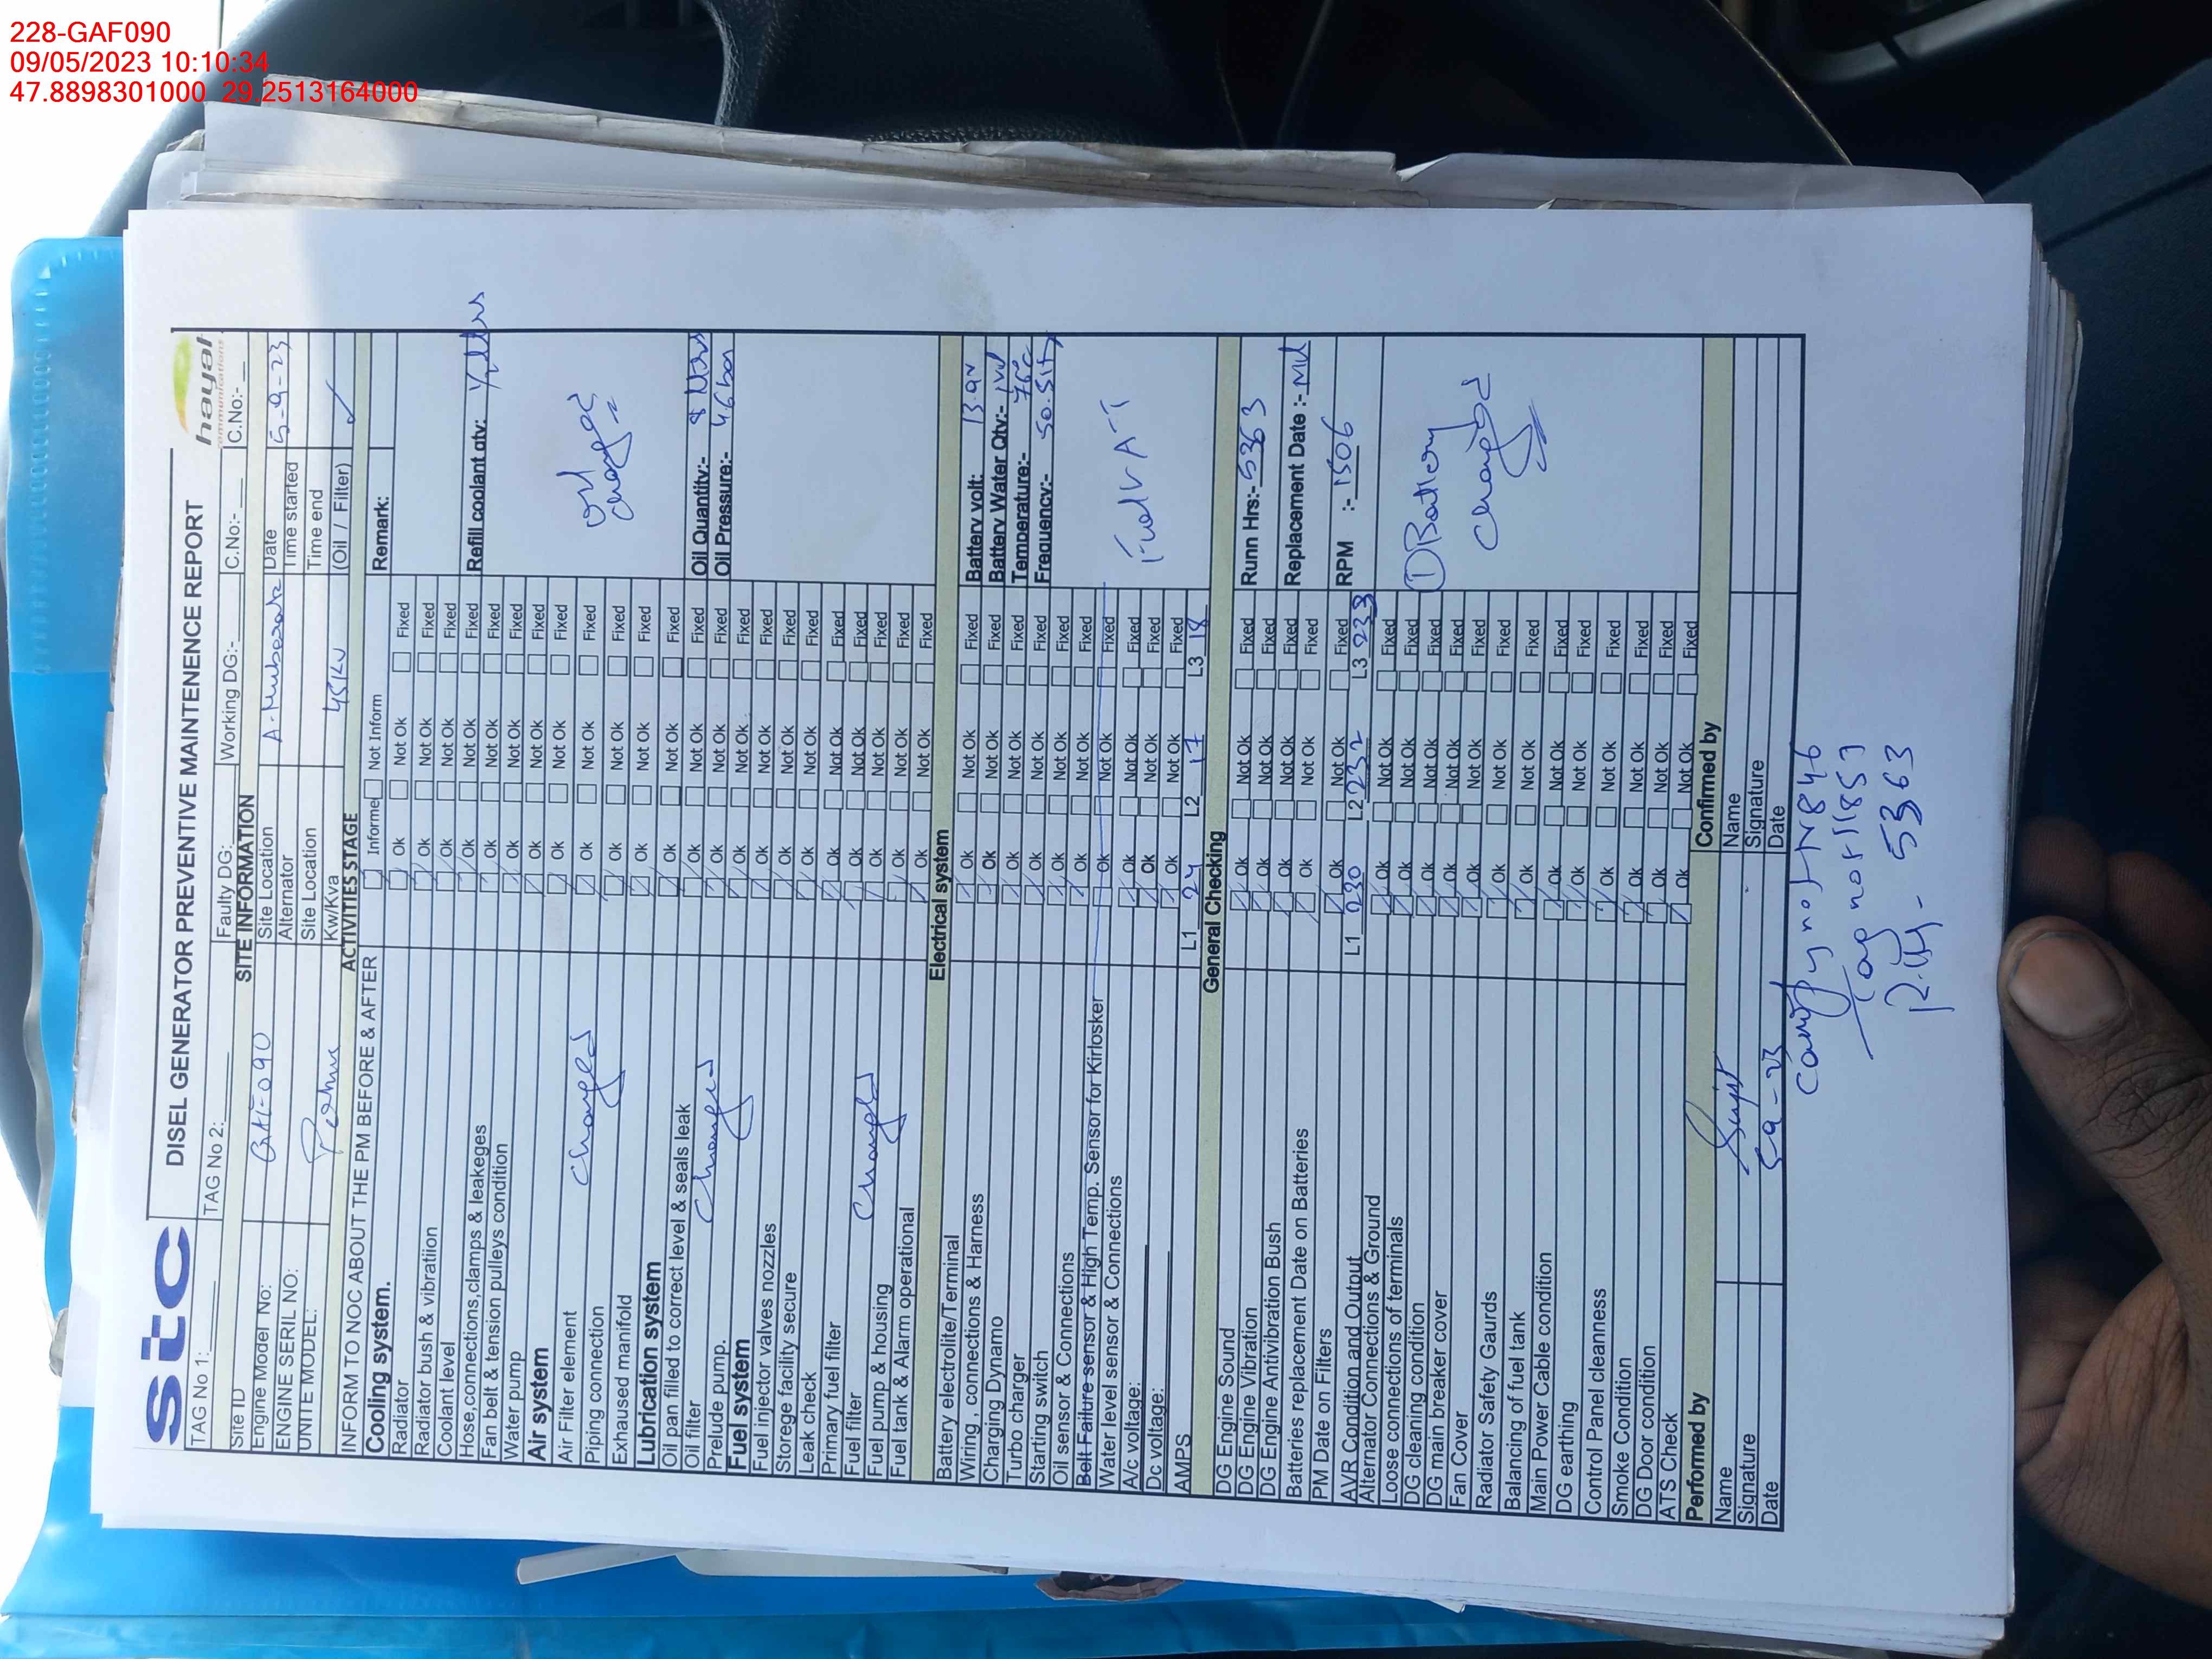 228-GAF090
09/05/2023 10:10:34
47.8898301000 29.2513164000
stc
DISEL GENERATOR PREVENTIVE MAINTENENCE REPORT
hayat
communications
TAG No 1: TAG No 2: Faulty DG: Working DG:- C.No:- C.No:-
SITE INFORMATION
Site ID Site Location Date 5-9-23
Engine Model No: Alternator Time started
ENGINE SERIL NO: Site Location Time end
UNITE MODEL: Kw/Kva 45KV (Oil / Filter)
ACTIVITIES STAGE
INFORM TO NOC ABOUT THE PM BEFORE & AFTER Informe Not Inform Remark:
Cooling system.
Radiator Ok Not Ok Fixed
Radiator bush & vibratiion Ok Not Ok Fixed
Coolant level Ok Not Ok Fixed
Hose,connections,clamps & leakeges Ok Not Ok Fixed Refill coolant qty:
Fan belt & tension pulleys condition Ok Not Ok Fixed
Water pump Ok Not Ok Fixed
Air system Ok Not Ok Fixed
Air Filter element changed Ok Not Ok Fixed
Piping connection Ok Not Ok Fixed oil
Exhaused manifold Ok Not Ok Fixed changed
Lubrication system Ok Not Ok Fixed
Oil pan filled to correct level & seals leak Ok Not Ok Fixed
Oil filter changed Ok Not Ok Fixed Oil Quantity:- 8
Prelude pump. Ok Not Ok Fixed Oil Pressure:- 4.6 bar
Fuel system Ok Not Ok Fixed
Fuel injector valves nozzles Ok Not Ok Fixed
Storege facility secure Ok Not Ok Fixed
Leak check Ok Not Ok Fixed
Primary fuel filter Ok Not Ok Fixed
Fuel filter changed Ok Not Ok Fixed
Fuel pump & housing Ok Not Ok Fixed
Fuel tank & Alarm operational Ok Not Ok Fixed
Electrical system
Battery electrolite/Terminal Ok Not Ok Fixed Battery volt: 13.9v
Wiring , connections & Harness Ok Not Ok Fixed Battery Water Qty:-
Charging Dynamo Ok Not Ok Fixed Temperature:-
Turbo charger Ok Not Ok Fixed Frequency:-
Starting switch Ok Not Ok Fixed
Oil sensor & Connections Ok Not Ok Fixed
Belt Failure sensor & High Temp. Sensor for Kirlosker Ok Not Ok Fixed
Water level sensor & Connections Ok Not Ok Fixed
A/c voltage: Ok Not Ok Fixed
Dc voltage: Ok Not Ok Fixed
AMPS L1 24 L2 17 L3 18
General Checking
DG Engine Sound Ok Not Ok Fixed Runn Hrs:- 5363
DG Engine Vibration Ok Not Ok Fixed
DG Engine Antivibration Bush Ok Not Ok Fixed Replacement Date :-
Batteries replacement Date on Batteries Ok Not Ok Fixed
PM Date on Filters Ok Not Ok Fixed RPM :- 1506
AVR Condition and Output L1 230 L2 232 L3 233
Alternator Connections & Ground Ok Not Ok Fixed
Loose connections of terminals Ok Not Ok Fixed
DG cleaning condition Ok Not Ok Fixed 1 Battery
DG main breaker cover Ok Not Ok Fixed changed
Fan Cover Ok Not Ok Fixed
Radiator Safety Gaurds Ok Not Ok Fixed
Balancing of fuel tank Ok Not Ok Fixed
Main Power Cable condition Ok Not Ok Fixed
DG earthing Ok Not Ok Fixed
Control Panel cleanness Ok Not Ok Fixed
Smoke Condition Ok Not Ok Fixed
DG Door condition Ok Not Ok Fixed
ATS Check Ok Not Ok Fixed
Performed by Confirmed by
Name Name
Signature Signature
Date 5-9-23 Date
5363